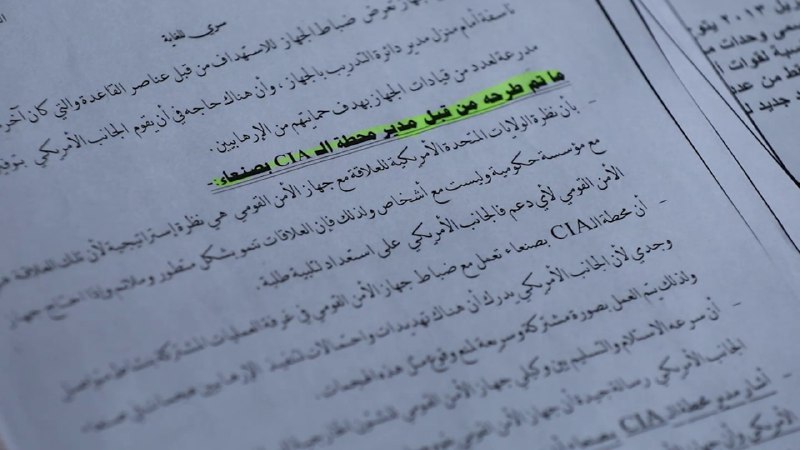 سري للغاية
الجهاز تعرض ضباط الجهاز للاستهداف من قبل عناصر القاعدة والتي كان آخر
ناسفة أمام منزل مدير دائرة التدريب بالجهاز، وأن هناك حاجه في أن يقوم الجانب الأمريكي
مدرعة لعدد من قيادات الجهاز بهدف حمايتهم من الإرهابيين.
ما تم طرحه من قبل مدير محطة الـ CIA بصنعاء:-
- بأن نظرة الولايات المتحدة الأمريكية للعلاقة مع جهاز الأمن القومي هي نظرة إستراتيجية لأن تلك العلاقة
مع مؤسسة حكومية وليست مع أشخاص ولذلك فإن العلاقات تنمو بشكل متطور وملائم وإذا احتاج جهاز
الأمن القومي لأي دعم فالجانب الأمريكي على استعداد لتلبية طلبه.
- أن محطة الـ CIA بصنعاء تعمل مع ضباط جهاز الأمن القومي في غرفة العمليات المشتركة
وجدي لأن الجانب الأمريكي يدرك أن هناك تهديدات واحتمالات لتنفيذ الإرهابيين
ولذلك يتم العمل بصورة مشتركة وسريعة لمنع وقوع مثل هذه الهجمات.
- أن سرعه الاستلام والتسليم بين وكيلي جهاز الأمن القومي للشئون الخارجية
الجانب الأمريكي رسالة جيدة أن جهاز الأمن القومي
- أشار مدير محطة الـ CIA بصنعاء
الأمريكي وأن
٢٠١٣
وحدات
لقوات
من
جديد